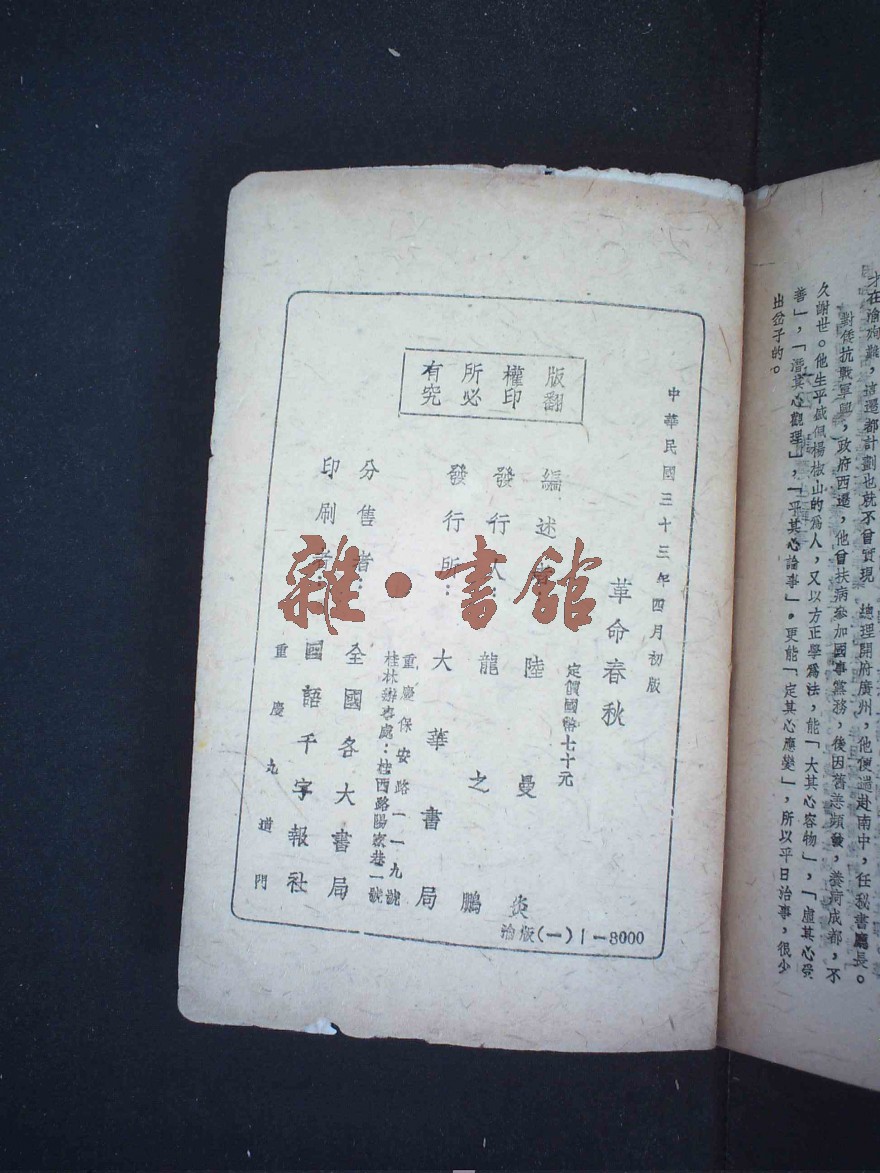 才在渝殉難，這還都計劃也就不曾實現　總理開府廣州，他便遄赴南中，任秘書廳長。
對倭抗戰軍興，政府西遷，他曾扶病參加國事黨務，後因舊恙頻發，養疴成都，不
久謝世。他生平盛佩楊椒山的為人，又以方正學為法，能「大其心容物」，「虛其心受
善」，「潛其心觀理」，「平其心論事」，更能「定其心應變」，所以平日治事，很少
出岔子的。
中華民國三十三年四月初版
版權所有
翻印必究
革命春秋
定價國幣七十元
編述者：陸曼炎
發行人：龍之鵬
發行所：大華書局
重慶保安路一一九號
桂林辦事處：桂西路陽家巷一號
分售者：全國各大書局
印刷者：國語千字報社
重慶九道門
渝版(一)1—3000
雜·書館